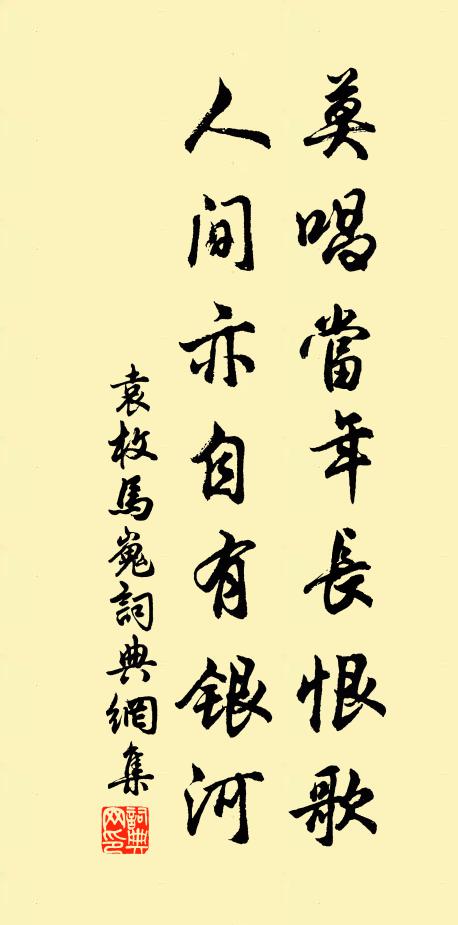 莫唱當年長恨歌
人间亦自有銀河
袁枚馬嵬詞典網集
詞典网印